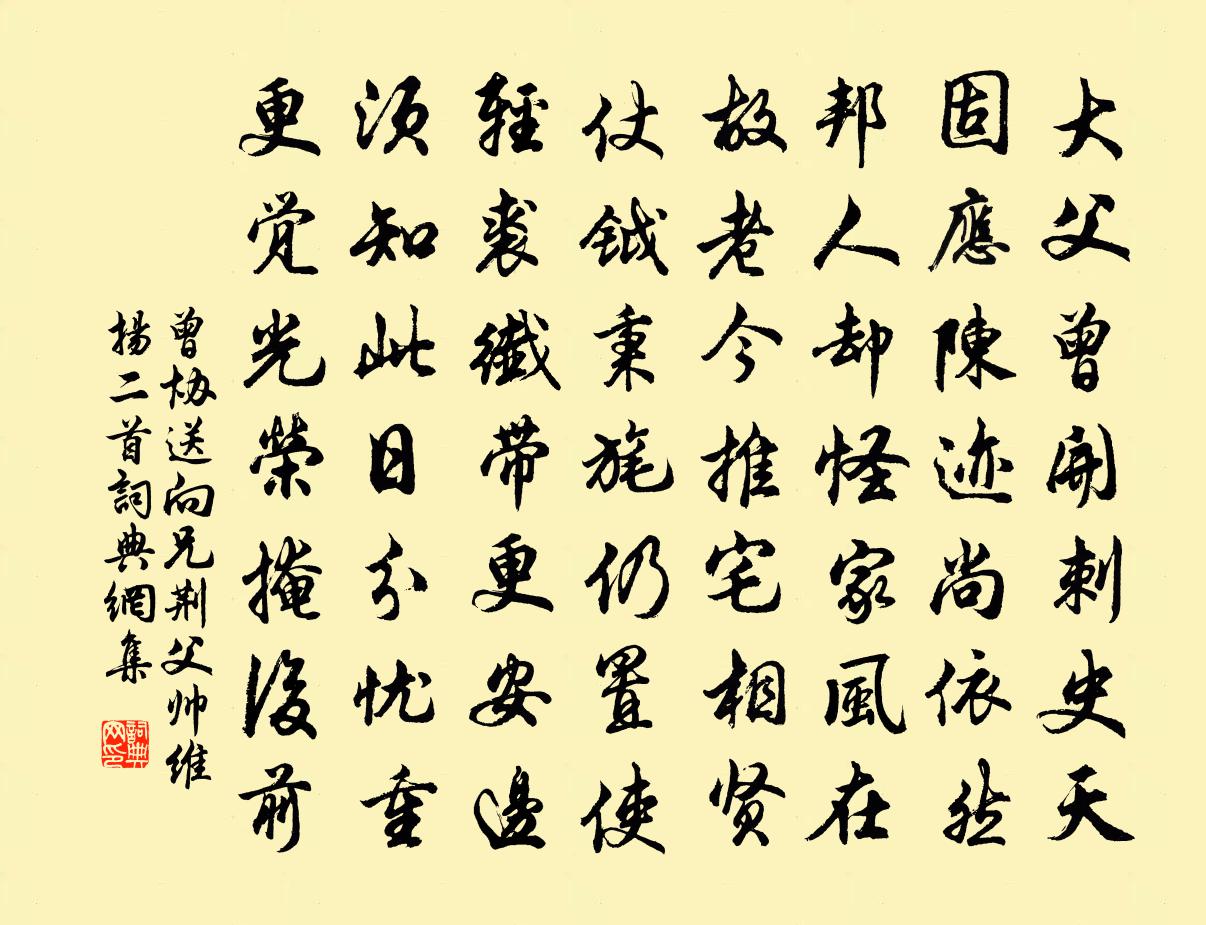 大父曾開刺史天
固應陳迹尚依然
邦人却怪家風在
故老今推宅相贤
仗鉞秉旄仍置使
輕裘纖带更安邊
須知此日分忧重
更觉光榮掩後前
曾协送向兄荆父帅維
揚二首詞典網集
詞典
网印